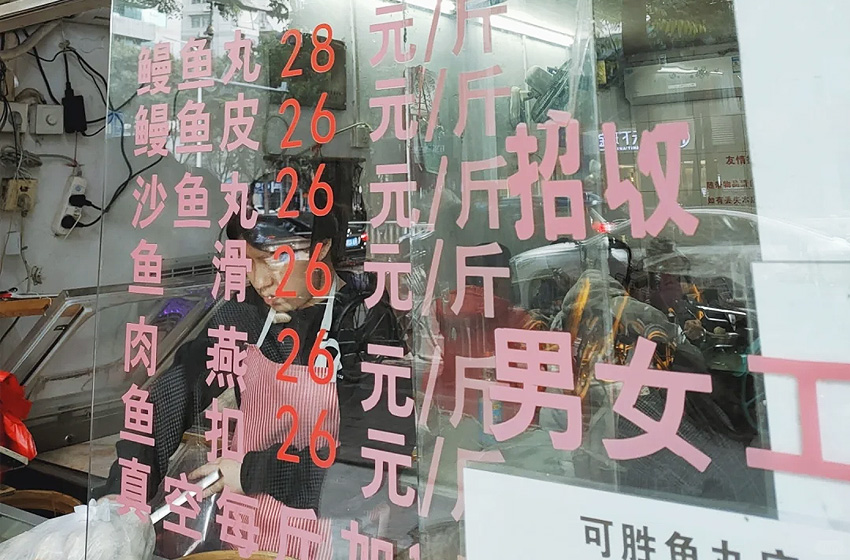 鳗鱼丸 28 元/斤
鳗鱼皮 26 元/斤
沙鱼丸 26 元/斤
鱼滑 26 元/斤
肉燕 26 元/斤
鱼扣 26 元/斤
真空每斤加
招收
男女工
友情
可胜鱼丸店